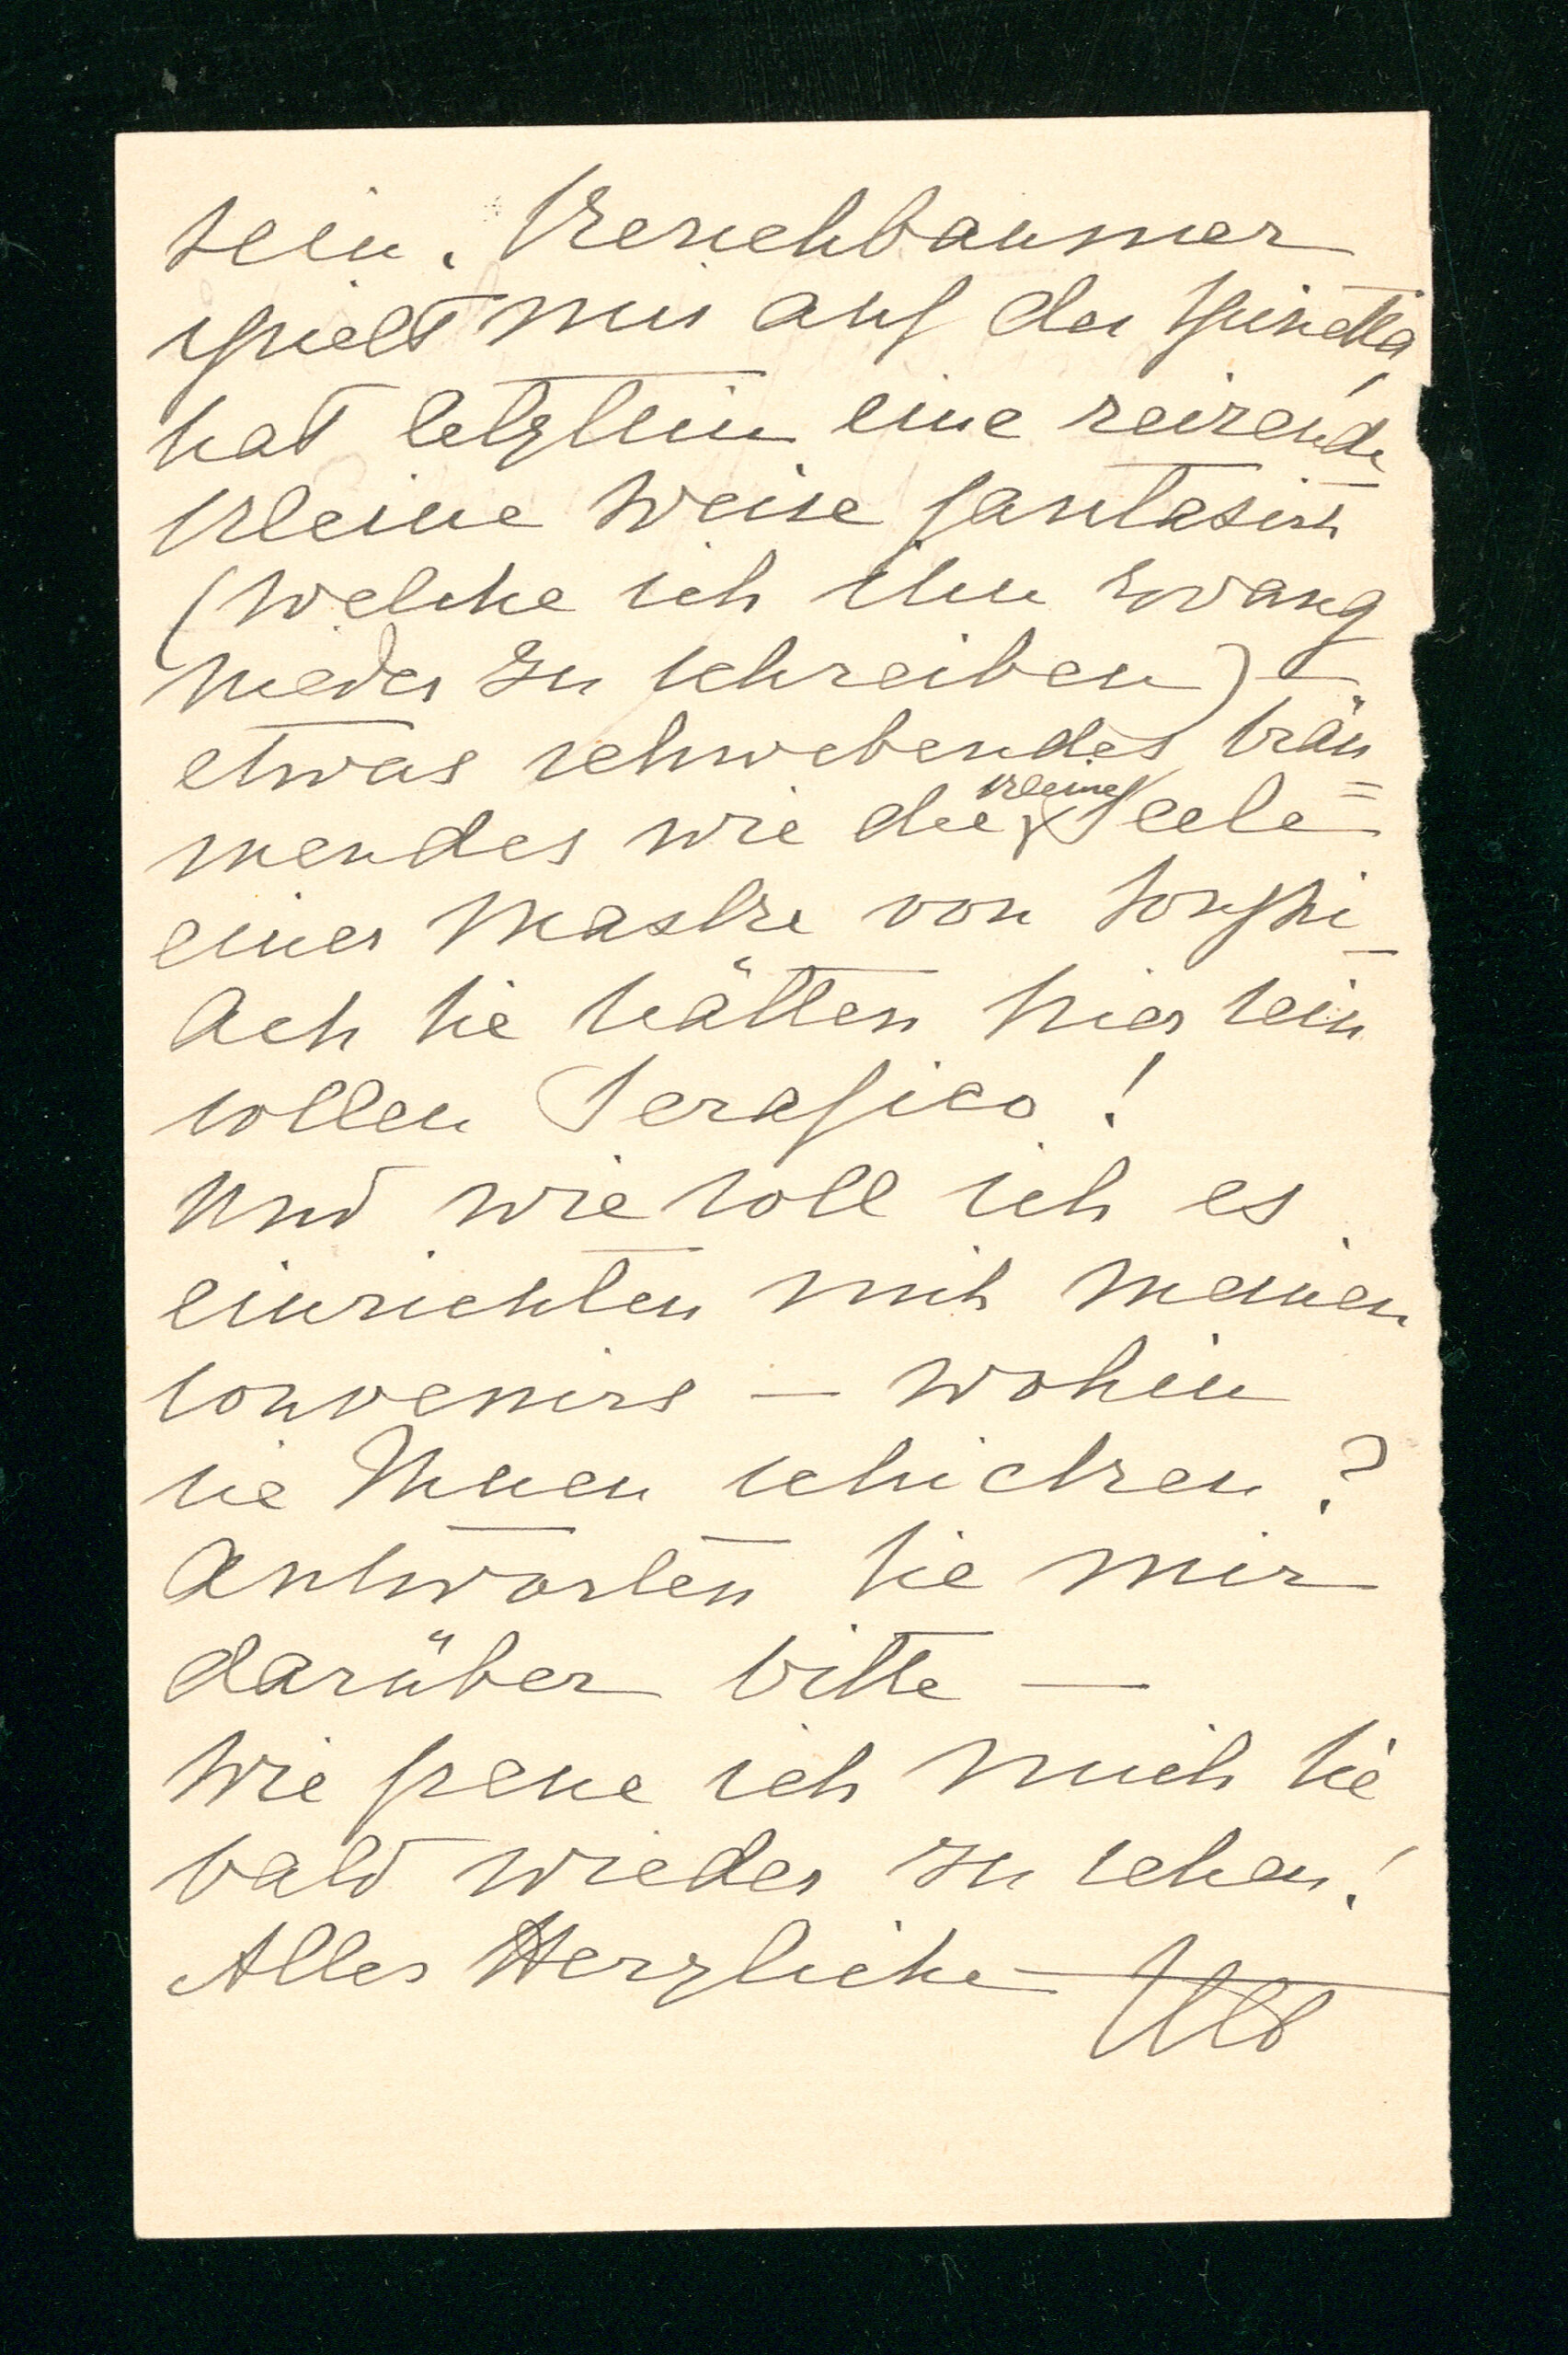 sein. Kerschbaumer
spielt mir auf der Spinetta,
hat letzthin eine reizende
kleine Weise fantasirt
(welche ich ihn zwang
nieder zu schreiben) —
etwas schwebendes träu=
mendes wie die kleine Seele
einer Maske von Longhi —
Ach Sie hätten hier sein
sollen Serafico!
Und wie soll ich es
einrichten mit meinen
souvenirs — wohin
sie Ihnen schicken?
Antworten Sie mir
darüber bitte —
Wie freue ich mich Sie
bald wieder zu sehen!
Alles Herzliche —